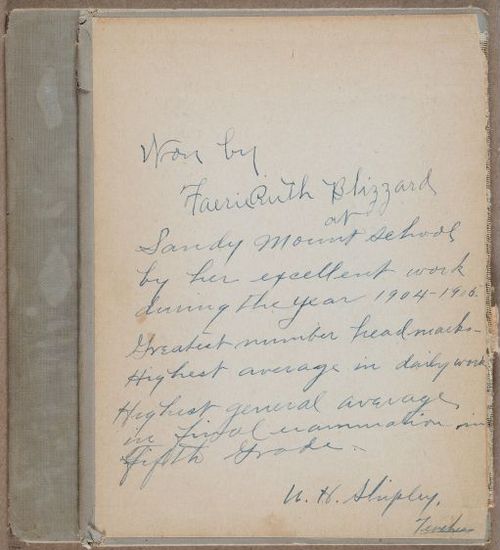 Won by
Faerie Ruth Blizzard
at
Sandy Mount School
by her excellent work
during the year 1904-1906.
Greatest number head marks-
Highest average in daily work
Highest general average
in final examination in
fifth Grade.
Shipley,
Teacher